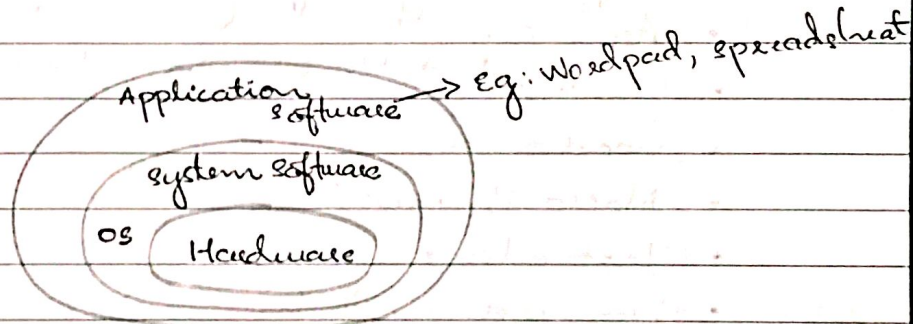 Application
software → Eg: Wordpad, spreadsheat
system software
OS
Hardware